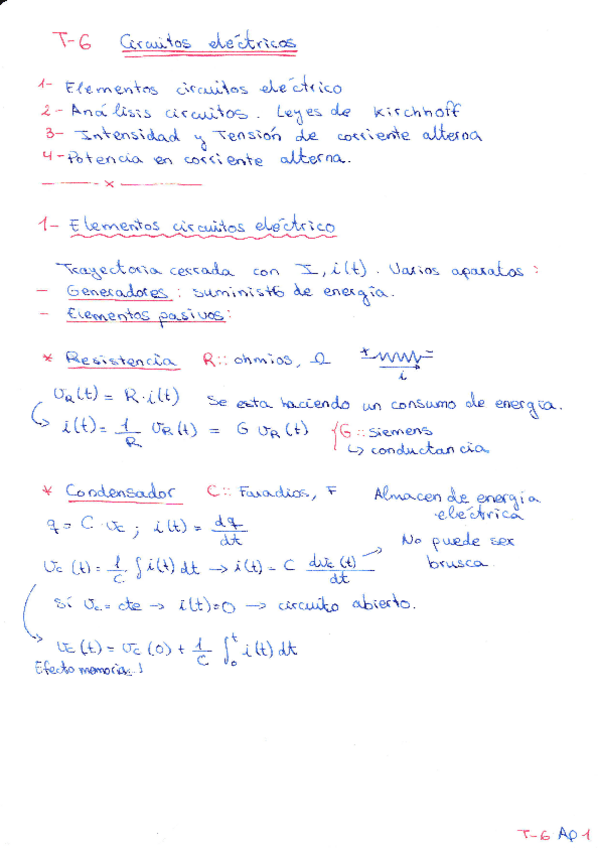 T-6 Circuitos eléctricos
1- Elementos circuitos eléctrico
2- Análisis circuitos. Leyes de Kirchhoff
3- Intensidad y Tensión de corriente alterna
4- Potencia en corriente alterna.
x
1- Elementos circuitos eléctrico
Trayectoria cerrada con I, i(t). Varios aparatos:
- Generadores: suministró de energía.
- Elementos pasivos:
* Resistencia R:: ohmios, Ω + -
i
UR(t) = R·i(t) Se esta haciendo un consumo de energía.
i(t) = 1/R UR(t) = G UR(t) {G:: siemens
↳ conductancia
* Condensador C:: Faradios, F Almacen de energía
eléctrica
q = C·uc ; i(t) = dq/dt
No puede ser
brusca
Uc(t) = 1/C ∫ i(t) dt → i(t) = C duc(t)/dt
Si Uc = cte → i(t)=0 → circuito abierto.
uc(t) = uc(0) + 1/C ∫₀ᵗ i(t) dt
Efecto memoria..!
T-6 Ap 1